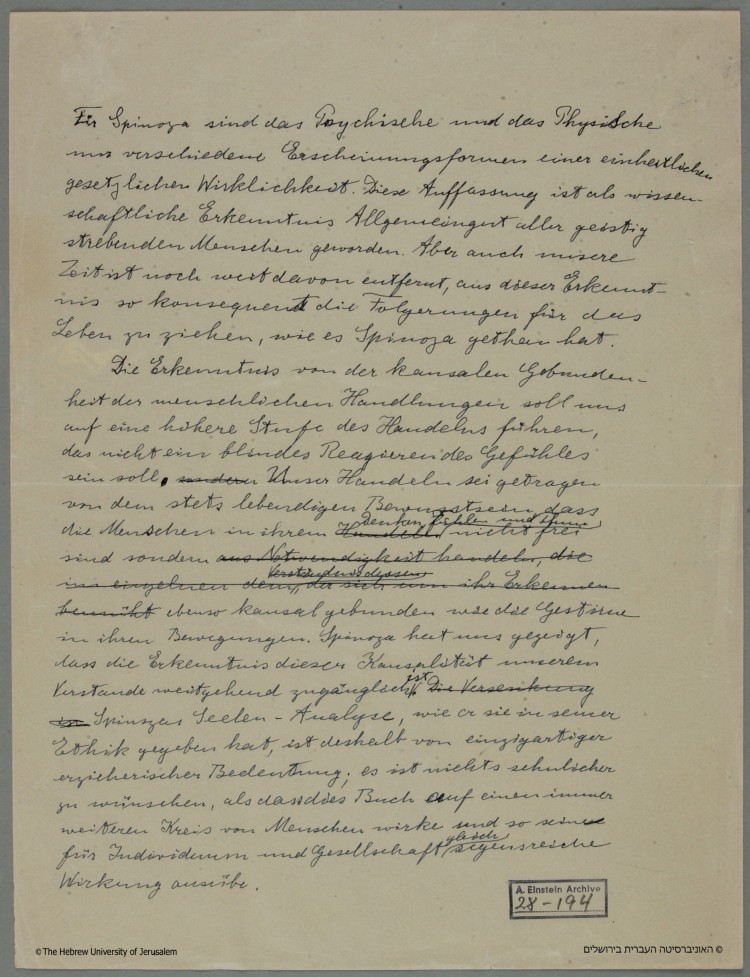 Für Spinoza sind das Psychische und das Physische
nur verschiedene Erscheinungsformen einer einheitlichen
gesetzlichen Wirklichkeit. Diese Auffassung ist als wissen-
schaftliche Erkenntnis Allgemeingut aller geistig
strebenden Menschen geworden. Aber auch unsere
Zeit ist noch weit davon entfernt, aus dieser Erkennt-
nis so konsequent die Folgerungen für das
Leben zu ziehen, wie es Spinoza gethan hat.
Die Erkenntnis von der kausalen Gebunden-
heit der menschlichen Handlungen soll uns
auf eine höhere Stufe des Handelns führen,
das nicht ein blindes Reagieren des Gefühles
sein soll. sondern Unser Handeln sei getragen
von dem stets lebendigen Bewusstsein, dass
Denken, Fühlen und Thun
die Menschen in ihrem Handeln nicht frei
sind sondern aus Notwendigkeit handeln, die
Verständnis dessen
im einzelnen dem, der sich um ihr Erkennen
bemüht ebenso kausal gebunden wie die Gestirne
in ihren Bewegungen. Spinoza hat uns gezeigt,
dass die Erkenntnis dieser Kausalität unserem
ist
Verstande weitgehend zugänglich. Die Versenkung
in Spinozas Seelen-Analyse, wie er sie in seiner
Ethik gegeben hat, ist deshalb von einzigartiger
erzieherischer Bedeutung; es ist nichts sehnlicher
zu wünschen, als dass dies Buch auf einen immer
weiteren Kreis von Menschen wirke und so seine
gleich
für Individuum und Gesellschaft segensreiche
Wirkung ausübe.
A. Einstein Archive
28-194
© The Hebrew University of Jerusalem
© האוניברסיטה העברית בירושלים